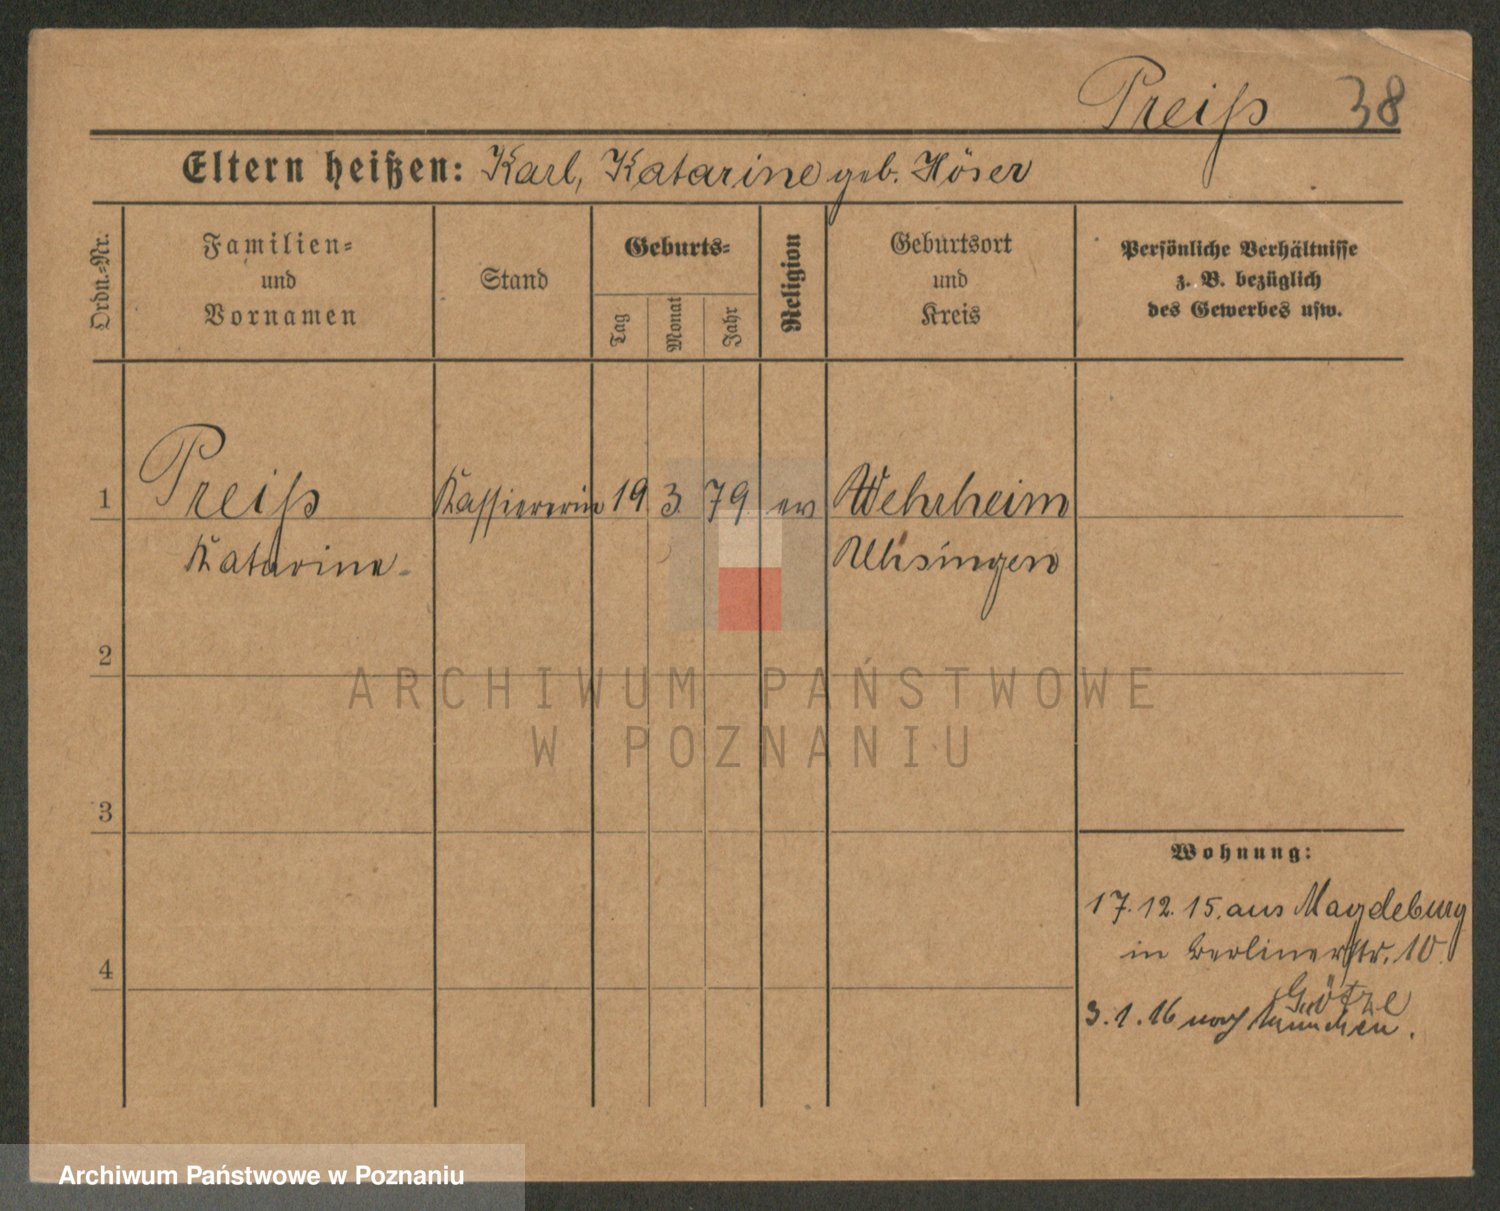 Preiß 38
Eltern heißen: Karl, Katarine geb. Höser
Ordn.-Nr.
Familien-
und
Vornamen
Stand
Geburts-
Tag
Monat
Jahr
Religion
Geburtsort
und
Kreis
Persönliche Verhältnisse
z. B. bezüglich
des Gewerbes usw.
1 Preiß Kassiererin 19. 3. 79. ev Wehrheim
Katarine Usingen
2
3
4
Wohnung:
17. 12. 15. aus Magdeburg
in Berlinerstr. 10.
Götze
3. 1. 16 nach München.
ARCHIWUM PAŃSTWOWE
W POZNANIU
Archiwum Państwowe w Poznaniu